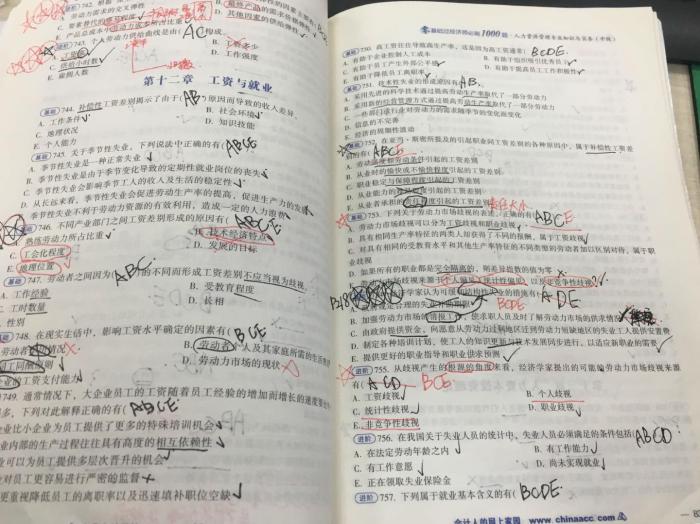 劳动力需求的交叉弹性
其他因素的供给弹性
743. 个人劳动力供给曲线是由( AC )构成。
B. 工资多少
D. 工作强度
E. 雇佣人数
第十二章 工资与就业
744. 补偿性工资差别揭示了由于( AB )原因而导致的收入差异。
A. 工作条件
B. 社会环境
C. 地理状况
D. 知识技能
E. 个人能力
745. 关于季节性失业,下列说法中正确的有( ABCE
A. 季节性失业是一种正常失业
B. 季节性失业是由于季节变化导致的定期性就业岗位的丧失
C. 季节性失业会影响季节工人的收入及生活的稳定性
D. 从长远来看,季节性失业会促进劳动生产率的提高,促进生产力的发展
E. 季节性失业不利于劳动力资源的有效利用,造成一定的人力浪费
746. 不同产业部门之间工资差别形成的原因有( ABCE
A. 熟练劳动力所占比重
B. 技术经济特点
C. 工会化程度
D. 发展的目标
E. 地理位置
747. 劳动者之间因为( ABC )的不同而形成工资差别不应当视为歧视。
A. 工作经验
B. 受教育程度
C. 工时数量
D. 长相
性别
748. 在现实生活中,影响工资水平确定的因素有( BCE
B. 劳动者个人及其家庭所需的生活费用
同工同酬原则
D. 劳动力市场的现状
企业的工资支付能力
749. 通常情况下,大企业员工的工资随着员工经验的增加而增长的速度要
多,下列对此解释正确的有( ABCE
企业比小企业为员工提供了更多的特殊培训机会
业内部的生产过程往往具有高度的相互依赖性
业可以为员工提供多层次晋升的机会
业对员工更容易进行严密的监督
更重视降低员工的离职率以及迅速填补职位空缺
零基础过经济师必刷1000题·人力资源管理专业知识与实务(中级)
750. 高工资往往导致高生产率,这是因为高工资通常( BCDE
A. 有助于企业控制人工成本
B. 有助于组织吸引优秀员工
C. 有助于员工产生外部公平感
D. 有助于提高员工工作积极性
E. 有助于降低员工离职率
751. 技术性失业的形成原因有( AB
A. 采用先进的科学技术通过提高劳动生产率取代了一部分劳动力
B. 采用新的经营管理方式通过提高劳动生产率取代了一部分劳动力
C. 一些部门或行业对劳动力的需求随季节的变化而变化
D. 信息的不完善
E. 经济的周期性波动
752. 在亚当·斯密所提及的引起职业间工资差别的各种原因中,属于补偿性工资差
别的有( ABCE
A. 劳动强度和劳动条件引起的工资差别
B. 从业时的愉快或不愉快程度引起的工资差别
C. 职业稳定与保障程度引起的工资差别
D. 从业能力的难易程度引起的工资差别
E. 从业者承担的责任程度引起的工资差别
责任大小
753. 下列关于劳动力市场歧视的表述,正确的有( ABCE
A. 劳动力市场歧视可以分为工资歧视和职业歧视
B. 具有相同生产率特征的两类人却获得了不同的报酬,属于工资歧视
C. 对具有相同的受教育水平和其他生产率特征的不同类型的劳动者加以区别对待,属于职
业歧视
D. 如果所有的职业都是完全隔离的,则差异指数的值为零
E. 劳动力市场歧视来源于个人偏见、统计性偏见以及非竞争歧视
BCDE ADE
B. 加强劳动力市场的情报工作,使求职人员及时了解劳动力市场的供求情况
C. 由政府提供资金,向愿意从劳动力过剩地区迁到劳动力短缺地区的失业工人提供安置费
D. 制定各种培训计划,使工人的知识更新与技术发展同步进行,以适应新职业的需要
E. 提供更好的职业指导和职业供求预测
755. 从歧视产生的根源的角度来看,经济学家提出的可能的劳动力市场歧视来源
有( ACD BCE
A. 工资歧视
B. 个人歧视
C. 统计性歧视
D. 职业歧视
E. 非竞争性歧视
756. 在我国关于失业人员的统计中,失业人员必须满足的条件包括( ABCD
A. 在法定劳动年龄之内
B. 有工作能力
C. 有工作意愿
D. 尚未实现就业
E. 正在领取失业保险金
757. 下列属于就业基本含义的有( BCDE
会计人的网上家园 www.chinaacc.com